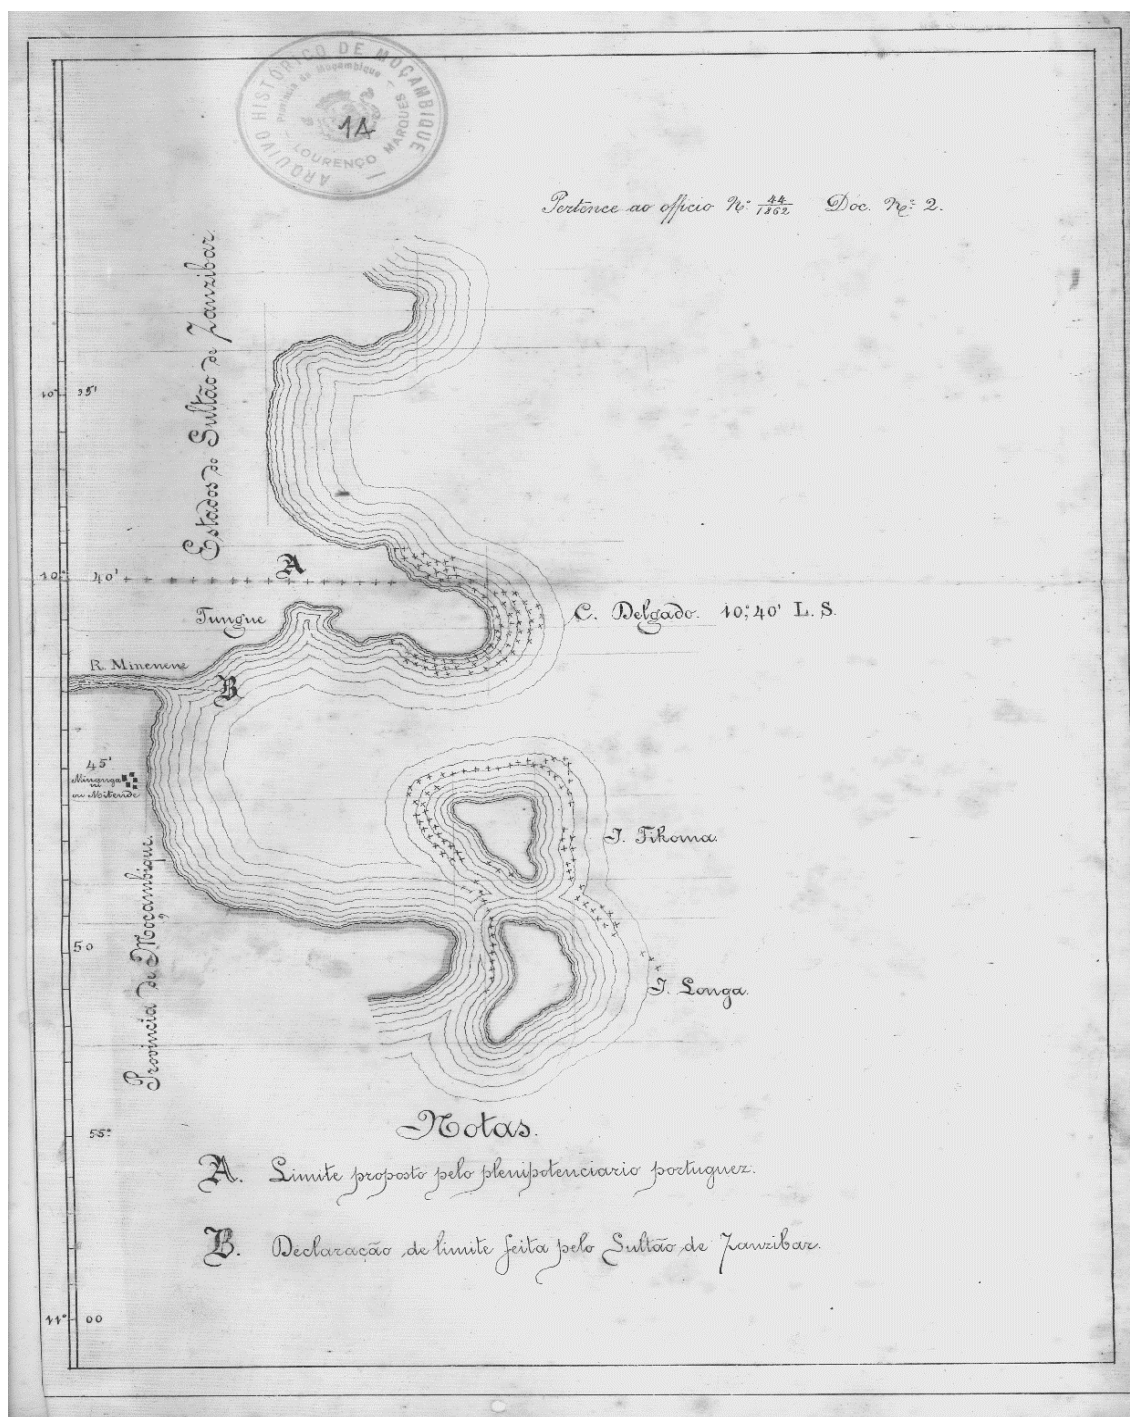 ARQUIVO HISTÓRICO DE MOÇAMBIQUE
Provincia de Moçambique
LOURENÇO MARQUES
1A
Pertence ao officio N.º 44/1862 Doc. N.º 2.
Estados do Sultão de Zanzibar.
10° 35'
A
10° 40'
Tungue
C. Delgado. 10;40' L. S.
R. Minenene
B
45'
ou Mitende
I. Tikoma.
Provincia de Moçambique.
50
I. Longa.
Notas.
55'
A. Limite proposto pelo plenipotenciario portuguez.
B. Declaração de limite feita pelo Sultão de Zanzibar.
11° 00